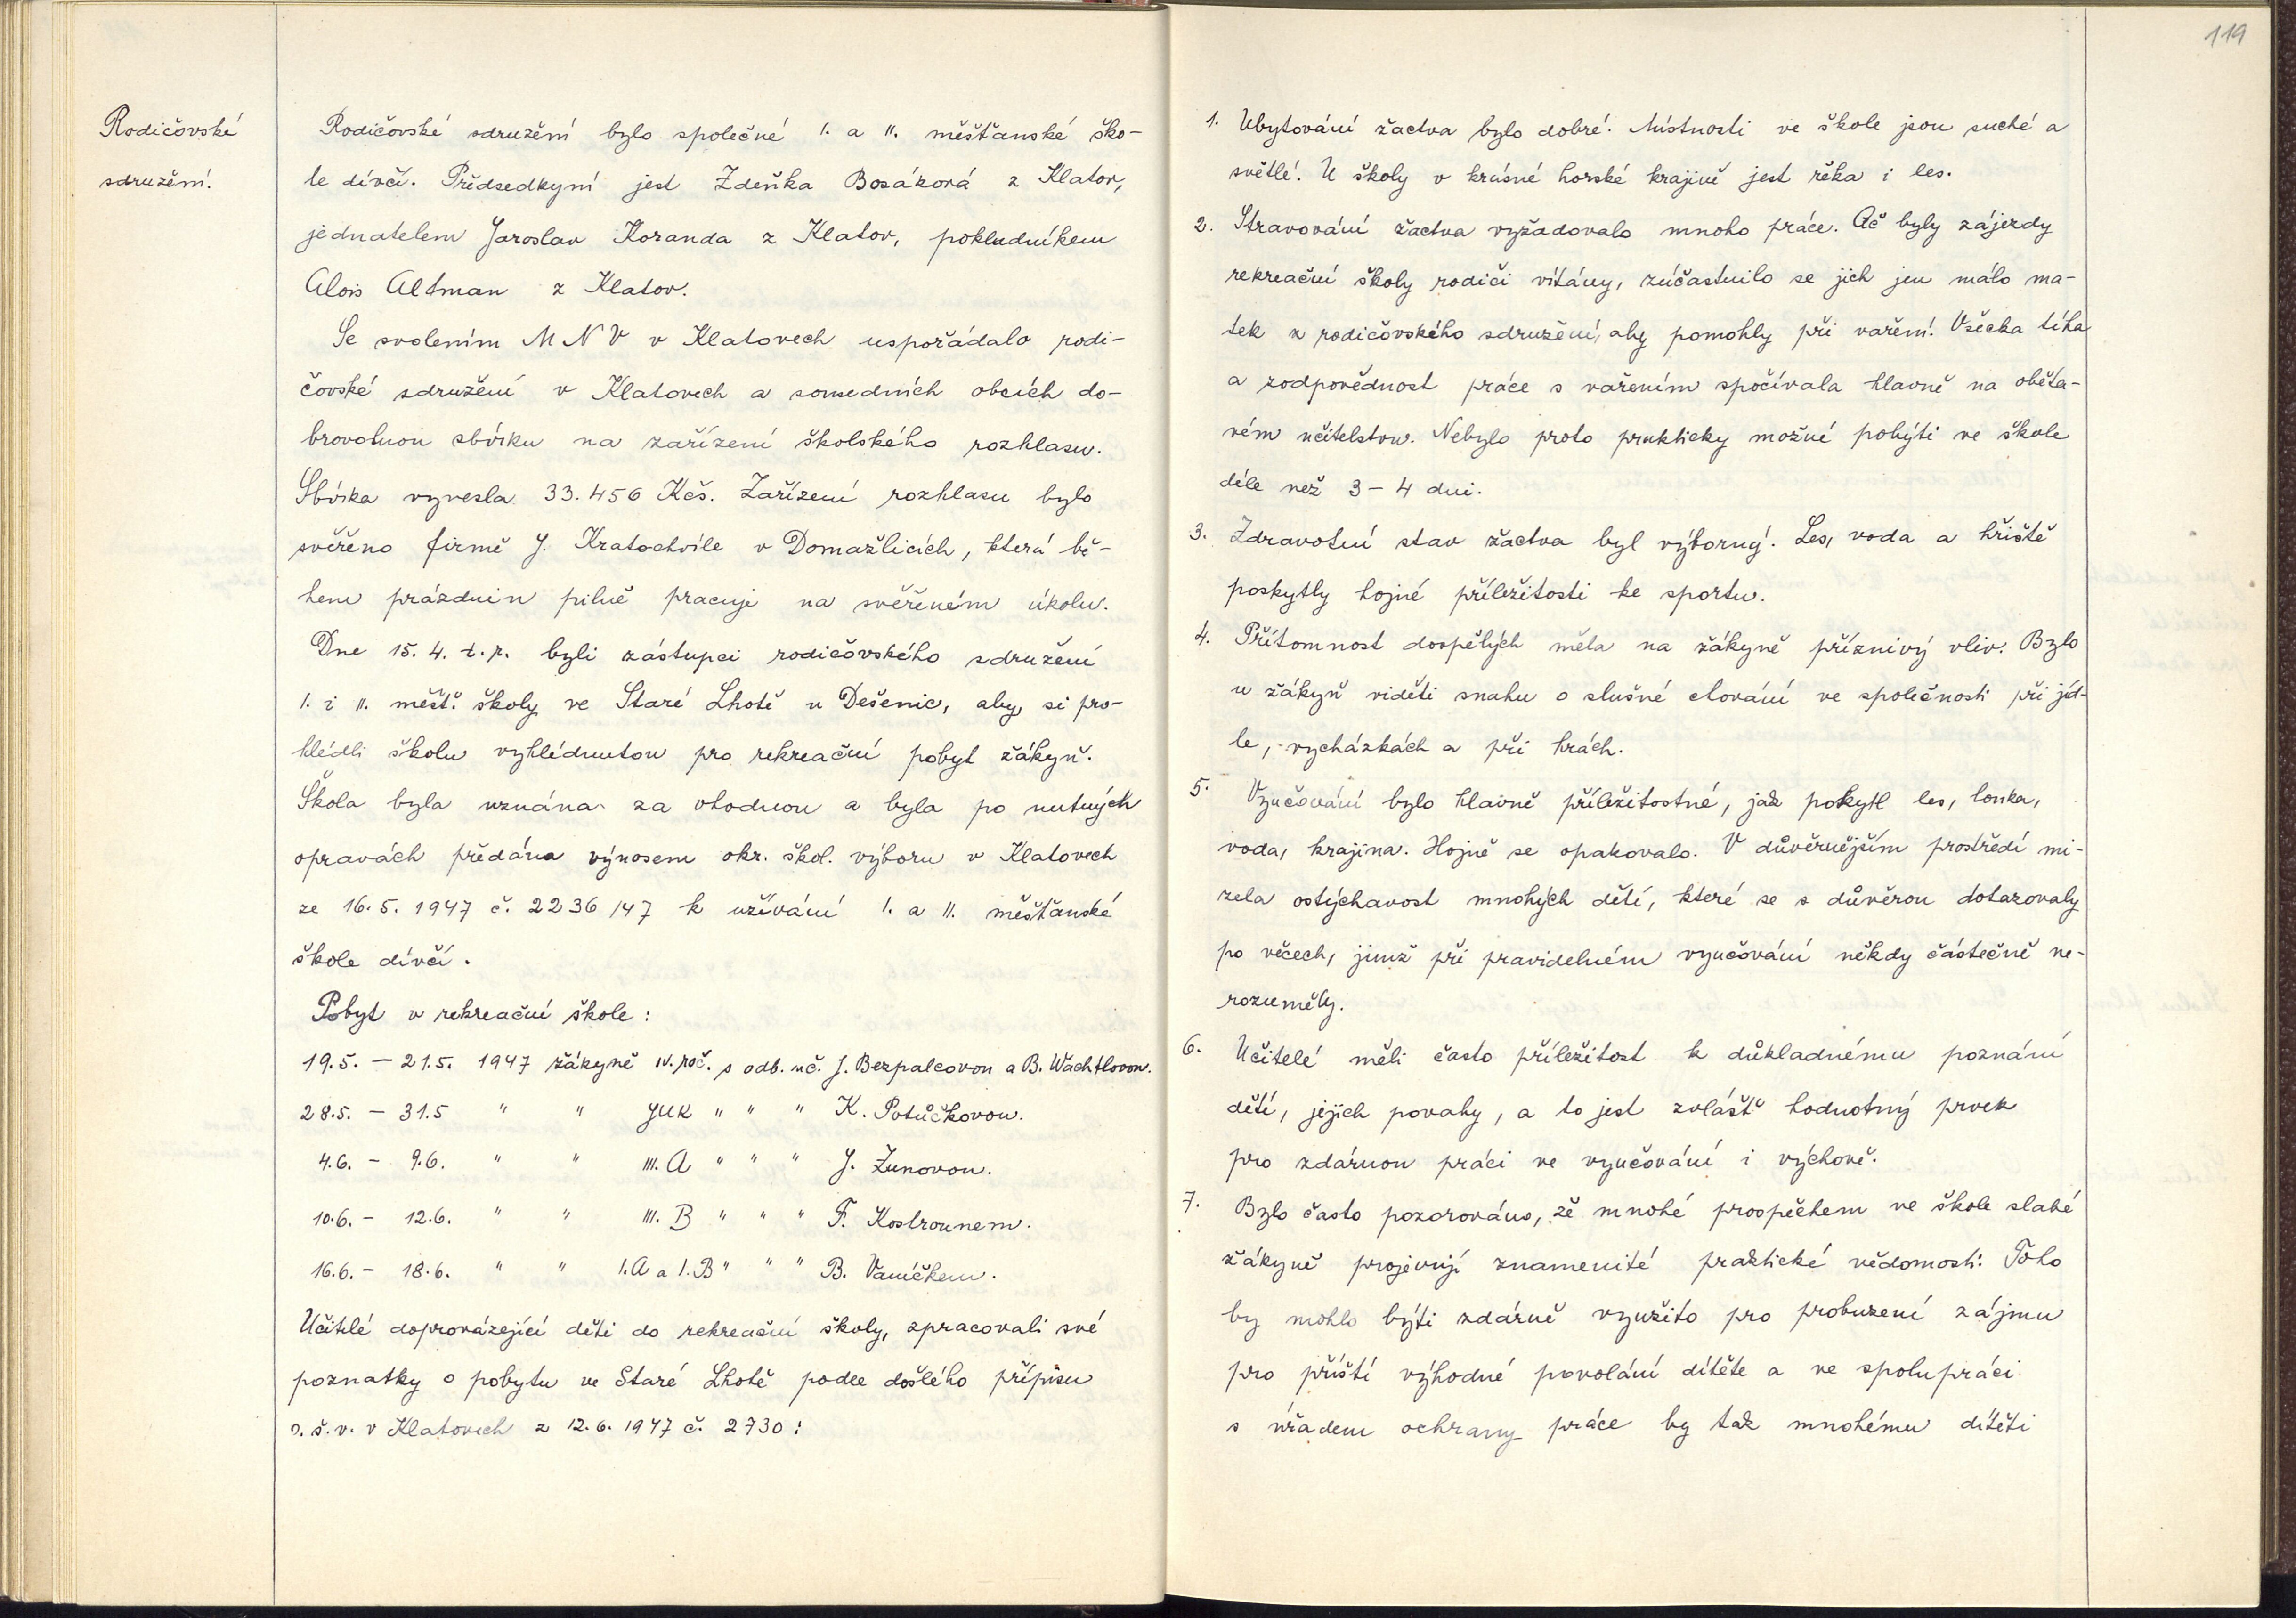 Rodičovské
sdružení.
Rodičovské sdružení bylo společné I. a II. měšťanské ško-
le dívčí. Předsedkyní jest Zdeňka Bosáková z Klatov,
jednatelem Jaroslav Koranda z Klatov, pokladníkem
Alois Altman z Klatov.
Se svolením MNV v Klatovech uspořádalo rodi-
čovské sdružení v Klatovech a sousedních obcích do-
brovolnou sbírku na zařízení školského rozhlasu.
Sbírka vynesla 33.456 Kčs. Zařízení rozhlasu bylo
svěřeno firmě J. Kratochvíle v Domažlicích, která bě-
hem prázdnin pilně pracuje na svěřeném úkolu.
Dne 15.4. t.r. byli zástupci rodičovského sdružení
I. i II. měšť. školy ve Staré Lhotě u Dešenic, aby si pro-
hlédli školu vyhlédnutou pro rekreační pobyt žákyň.
Škola byla uznána za vhodnou a byla po nutných
opravách předána výnosem okr. škol. výboru v Klatovech
ze 16.5.1947 č. 2236/47 k užívání I. a II. měšťanské
škole dívčí.
Pobyt v rekreační škole:
19.5. – 21.5. 1947 žákyně IV. roč. s odb. uč. J. Bezpalcovou a B. Wachtlovou.
28.5. – 31.5 " " JUK " " " K. Potůčkovou.
4.6. – 9.6. " " III. A " " " J. Žunovou.
10.6. – 12.6. " " III. B " " " F. Kostrounem.
16.6. – 18.6. " " I. A a I. B " " " B. Vaníčkem.
Učitelé doprovázející děti do rekreační školy, zpracovali své
poznatky o pobytu ve Staré Lhotě podle došlého přípisu
o.š.v. v Klatovech z 12.6.1947 č. 2730:
119
1. Ubytování žactva bylo dobré. Místnosti ve škole jsou suché a
světlé. U školy v krásné horské krajině jest řeka i les.
2. Stravování žactva vyžadovalo mnoho práce. Ač byly zájezdy
rekreační školy rodiči vítány, zúčastnilo se jich jen málo ma-
tek z rodičovského sdružení, aby pomohly při vaření. Všecka tíha
a zodpovědnost práce s vařením spočívala hlavně na oběta-
vém učitelstvu. Nebylo proto prakticky možné pobýti ve škole
déle než 3 – 4 dni.
3. Zdravotní stav žactva byl výborný. Les, voda a hřiště
poskytly hojné příležitosti ke sportu.
4. Přítomnost dospělých měla na žákyně příznivý vliv. Bylo
u žákyň viděti snahu o slušné chování ve společnosti při jíd-
le, vycházkách a při hrách.
5. Vyučování bylo hlavně příležitostné, jak pokytl les, louka,
voda, krajina. Hojně se opakovalo. V důvěrnějším prostředí mi-
zela ostýchavost mnohých dětí, které se s důvěrou dotazovaly
po věcech, jimž při pravidelném vyučování někdy částečně ne-
rozuměly.
6. Učitelé měli často příležitost k důkladnému poznání
dětí, jejich povahy, a to jest zvlášť hodnotný prvek
pro zdárnou práci ve vyučování i výchově.
7. Bylo často pozorováno, že mnohé prospěchem ve škole slabé
žákyně projevují znamenité praktické vědomosti. Toho
by mohlo býti zdárně využito pro probuzení zájmu
pro příští výhodné povolání dítěte a ve spolupráci
s úřadem ochrany práce by tak mnohému dítěti